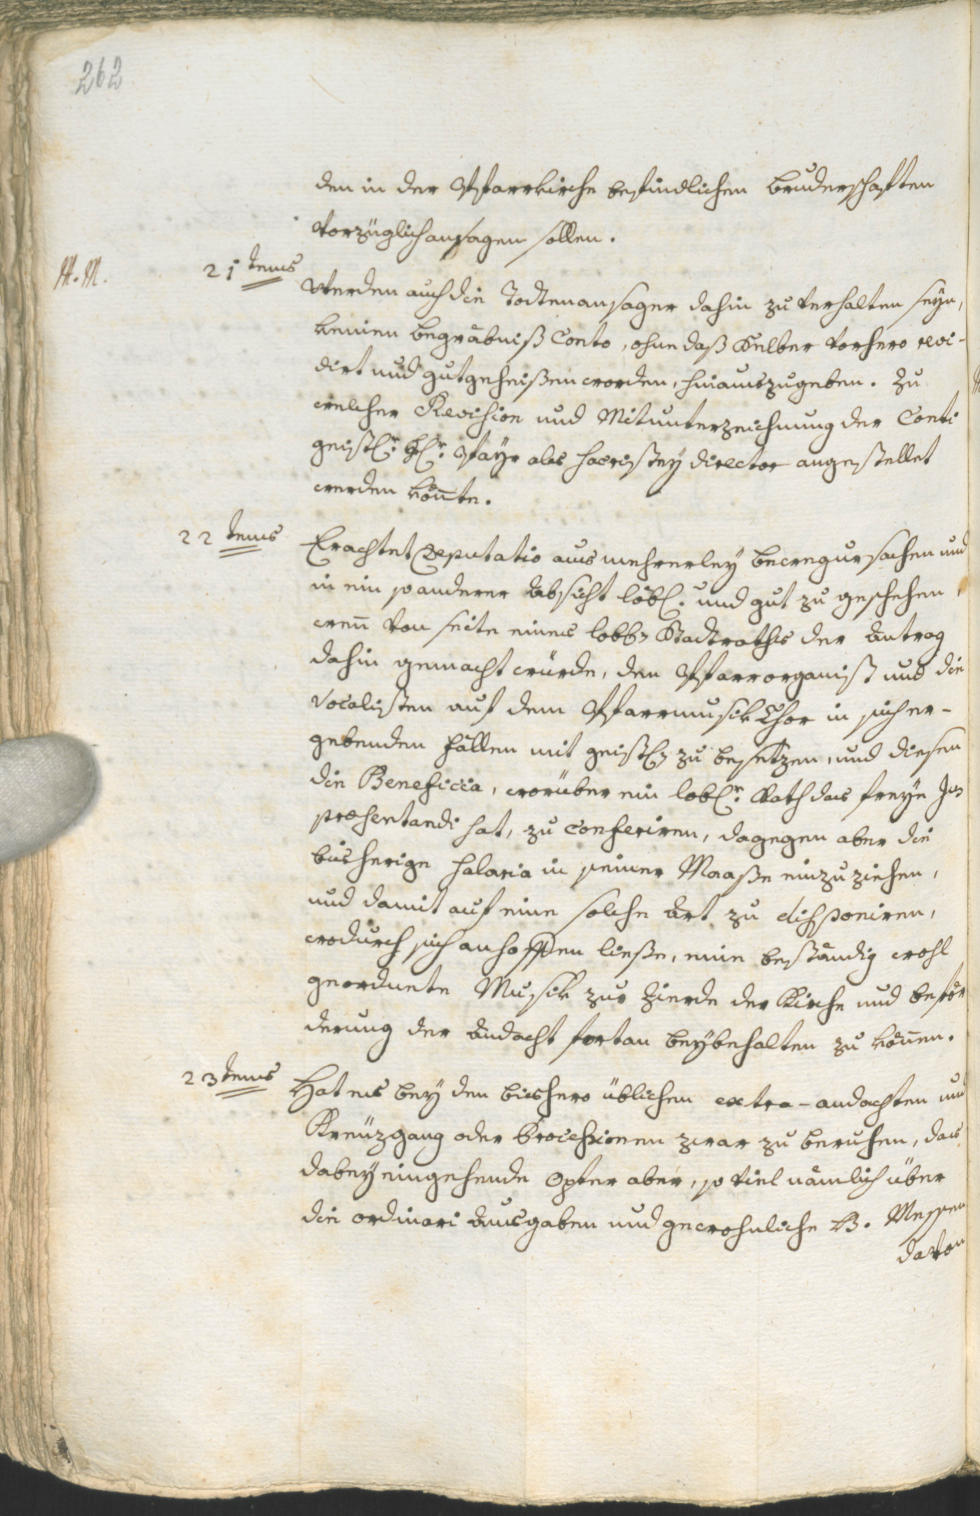 262
den in der Pfarrkirche befindlichen Bruderschaften
vorzüglich ansagen sollen.
M. M.
21tens
Werden auch die Todtenansager dahin zu verhalten seyn,
keinen begräbniß Conto, ohne daß Selber vorhero revi-
dirt und gutgeheißen worden, hinauszugeben. Zu
welcher Revision und Mitunterzeichnung der Conti
geistl: H: Mayr als Sacristey director angestellet
werden könte.
22tens
Erachtet Deputatio aus mehrerley bewegursachen und
in ein so anderer Absicht löbl. und gut zu geschehen,
wen von seite eines lobl. Stadtraths der Antrag
dahin gemacht würde, den Pfarrorganist und die
Vocalisten auf dem Pfarrmusik Chor in sich er-
gebenden fällen mit geistl. zu besetzen, und diesen
die Beneficia, worüber ein lobl: Rath das freye Jus
praesentandi hat, zu conferiren, dagegen aber die
bisherige Salaria in seiner Maaße einzuziehen,
und damit auf eine solche Art zu disponiren,
wodurch sich anhoffen ließe, eine beständig wohl
geordnete Musik zur Zierde der Kirche und beför
derung der Andacht fortan beybehalten zu können.
23tens
Hat es bey den bishero üblichen extra-andachten und
Kreuzgang oder Processionen zwar zu beruhen, das
dabey eingehende Opfer aber, so viel nämlich über
die ordinari Ausgaben und gewohnliche H. Messen
davon